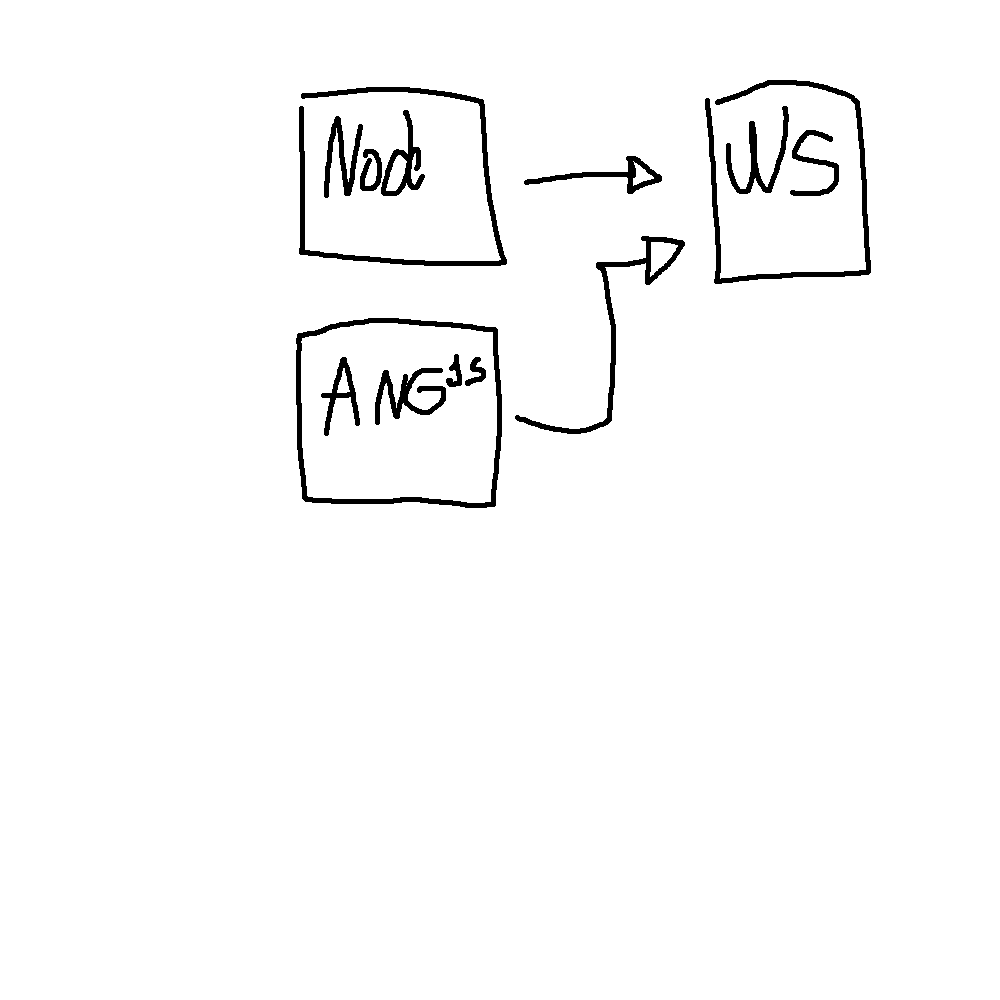 Node
WS
ANG JS